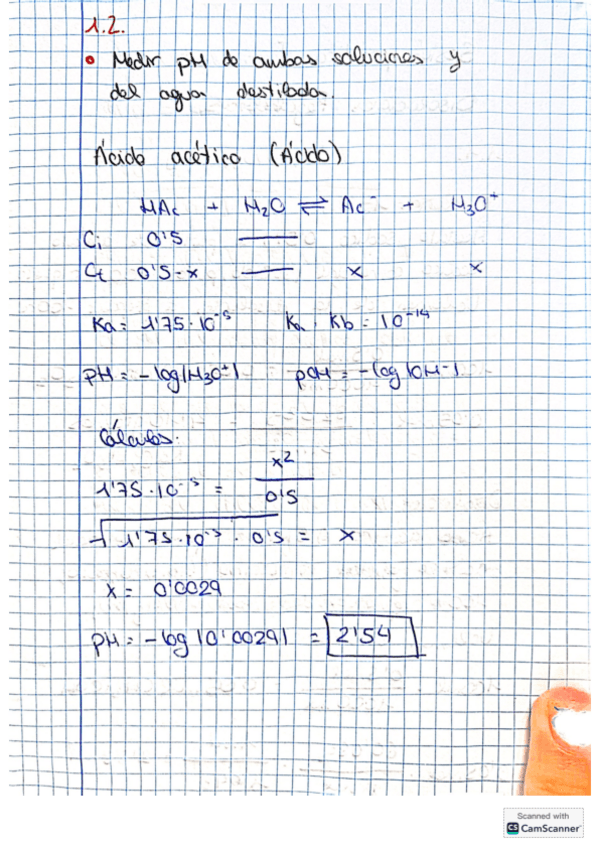 1.2.
• Medir pH de ambas soluciones y
del agua destilada.
Ácido acético (Ácido)
HAc + H₂O ⇌ Ac⁻ + H₃O⁺
Ci 0'5 —
Ct 0'5-x — x x
Ka = 1'75·10⁻⁵ Ka · Kb = 10⁻¹⁴
pH = -log|H₃O⁺| pOH = -log|OH⁻|
Cálculos.
1'75·10⁻⁵ = x² / 0'5
√1'75·10⁻⁵ · 0'5 = x
x = 0'0029
pH = -log|0'0029| = 2'54
Scanned with
CS CamScanner